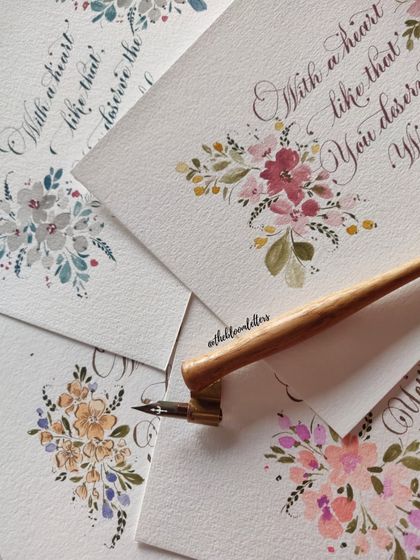 With a heart
like that,
deserve the
With a heart
like that
You deserv
@thebloomletters